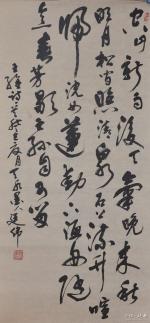 空山新雨後天氣晚來秋
明月松間照清泉石上流竹喧
歸浣女蓮動下漁舟隨
意春芳歇王孫自可留
王維詩